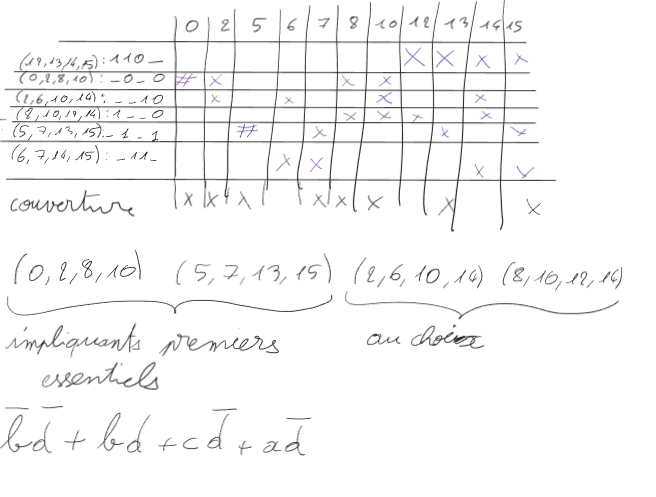 0 2 5 6 7 8 10 12 13 14 15
(12,13,14,15) : 110- X X x x
(0,2,8,10) : _0_0 # x x x
(2,6,10,14) : _ _10 x x x x
(8,10,12,14) : 1_ _0 x x x x
(5,7,13,15) : _1_1 # x x x
(6,7,14,15) : _11_ x x x x
couverture x x x x x x x x
(0,2,8,10) (5,7,13,15) (2,6,10,14) (8,10,12,14)
impliquants premiers au choix
essentiels
b̅d̅ + bd + cd̅ + ad̅